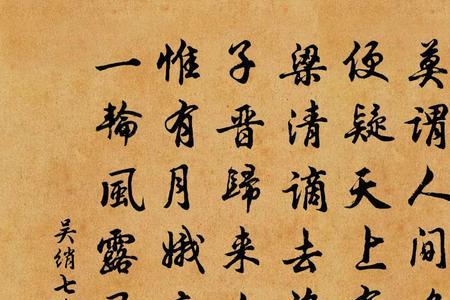 莫谓人间
便疑天上
梁清谪去
子晋归来
惟有月娥
一轮风露
吴绡七